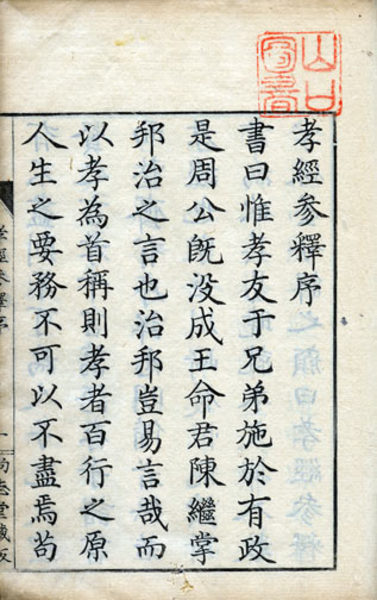 山口圖書
孝經參釋序
書曰惟孝友于兄弟施於有政
是周公旣没成王命君陳繼掌
邦治之言也治邦豈易言哉而
以孝為首稱則孝者百行之原
人生之要務不可以不盡焉苟
孝經參釋序
一
尚志堂藏板